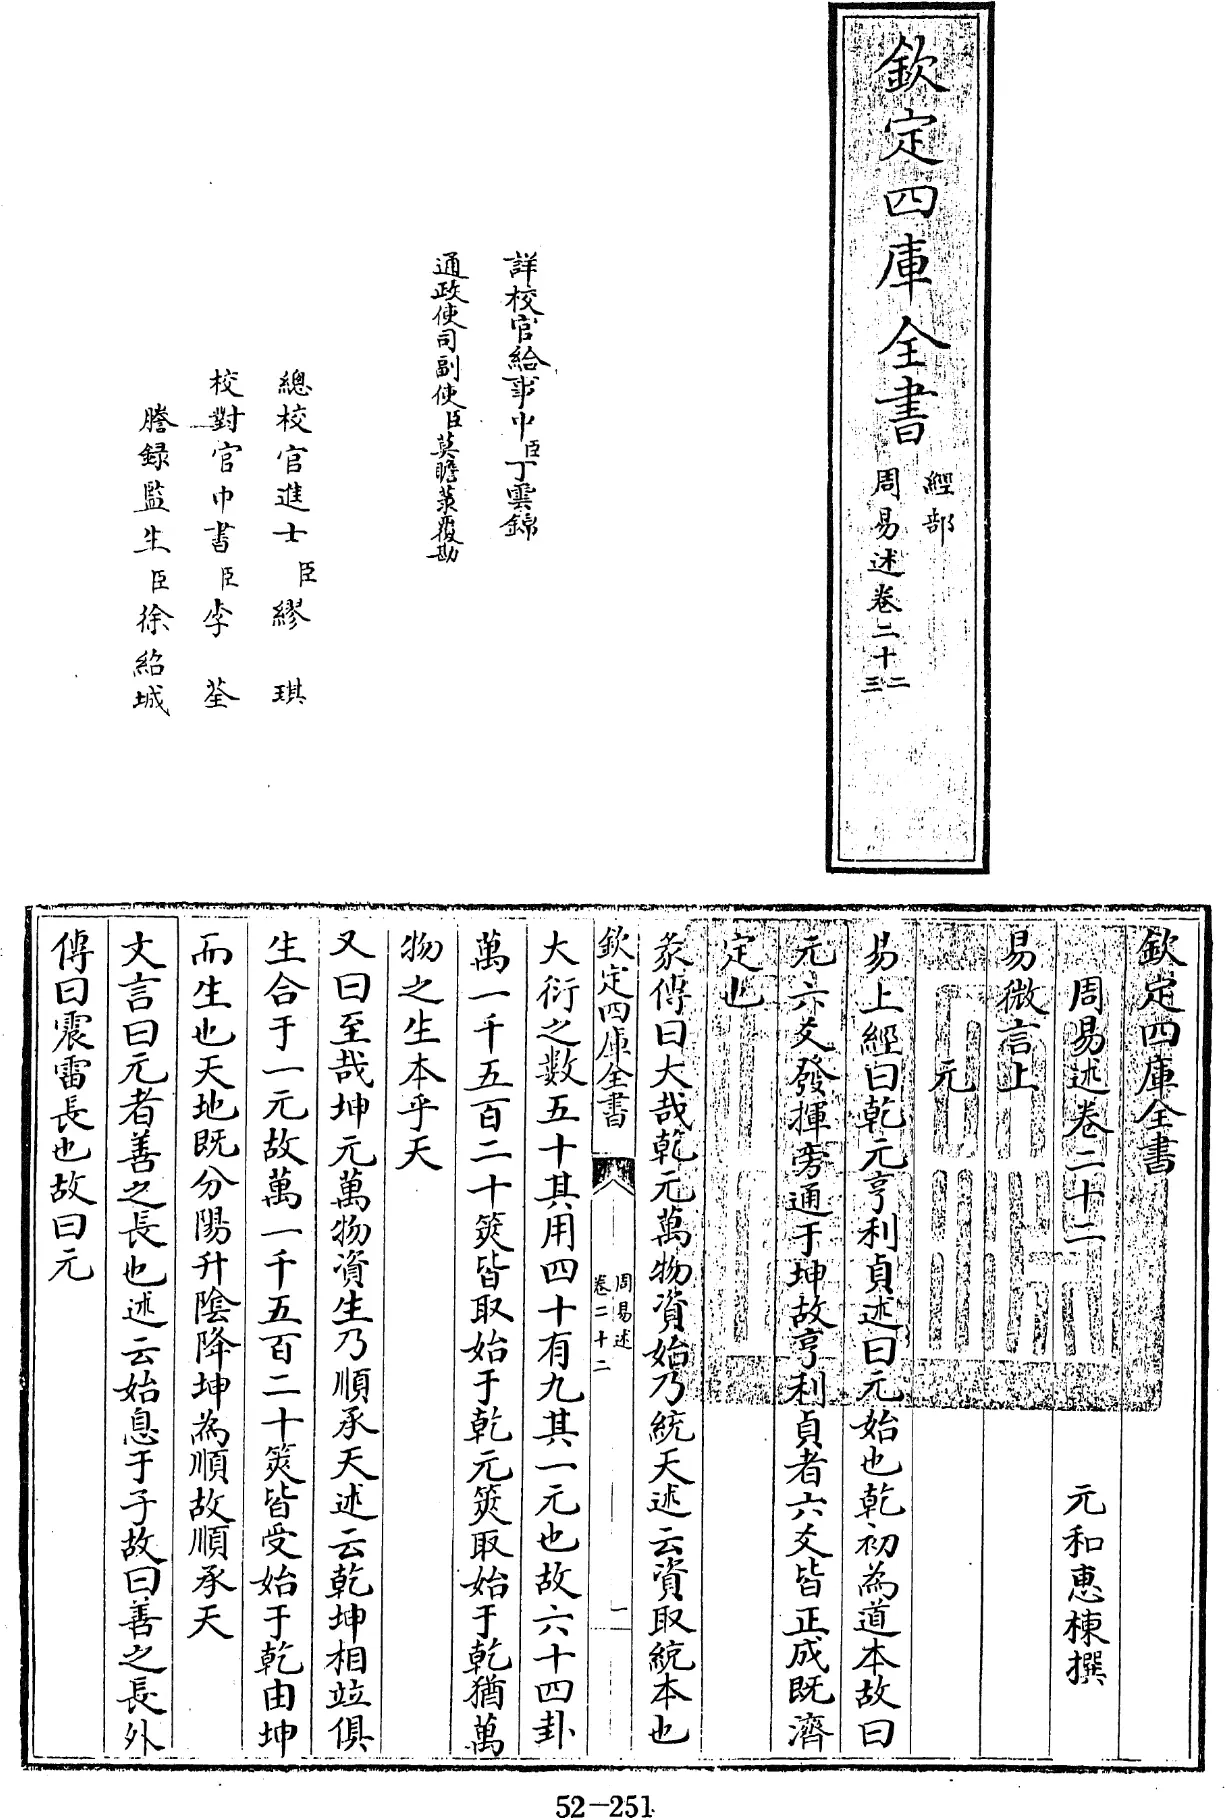 欽定四庫全書
經部
周易述卷二十二
二十三
詳校官給事中臣丁雲錦
通政使司副使臣莫瞻菉覆勘
總校官進士臣繆琪
校對官中書臣李荃
謄録監生臣徐紹城
欽定四庫全書
周易述卷二十二
元和惠棟撰
易微言上
元
易上經曰乾元亨利貞述曰元始也乾初為道本故曰
元六爻發揮旁通于坤故亨利貞者六爻皆正成既濟
定也
彖傳曰大哉乾元萬物資始乃統天述云資取統本也
欽定四庫全書
周易述
卷二十二
一
大衍之數五十其用四十有九其一元也故六十四卦
萬一千五百二十筴皆取始于乾元筴取始于乾猶萬
物之生本乎天
又曰至哉坤元萬物資生乃順承天述云乾坤相竝俱
生合于一元故萬一千五百二十筴皆受始于乾由坤
而生也天地既分陽升陰降坤為順故順承天
文言曰元者善之長也述云始息于子故曰善之長外
傳曰震雷長也故曰元
52-251